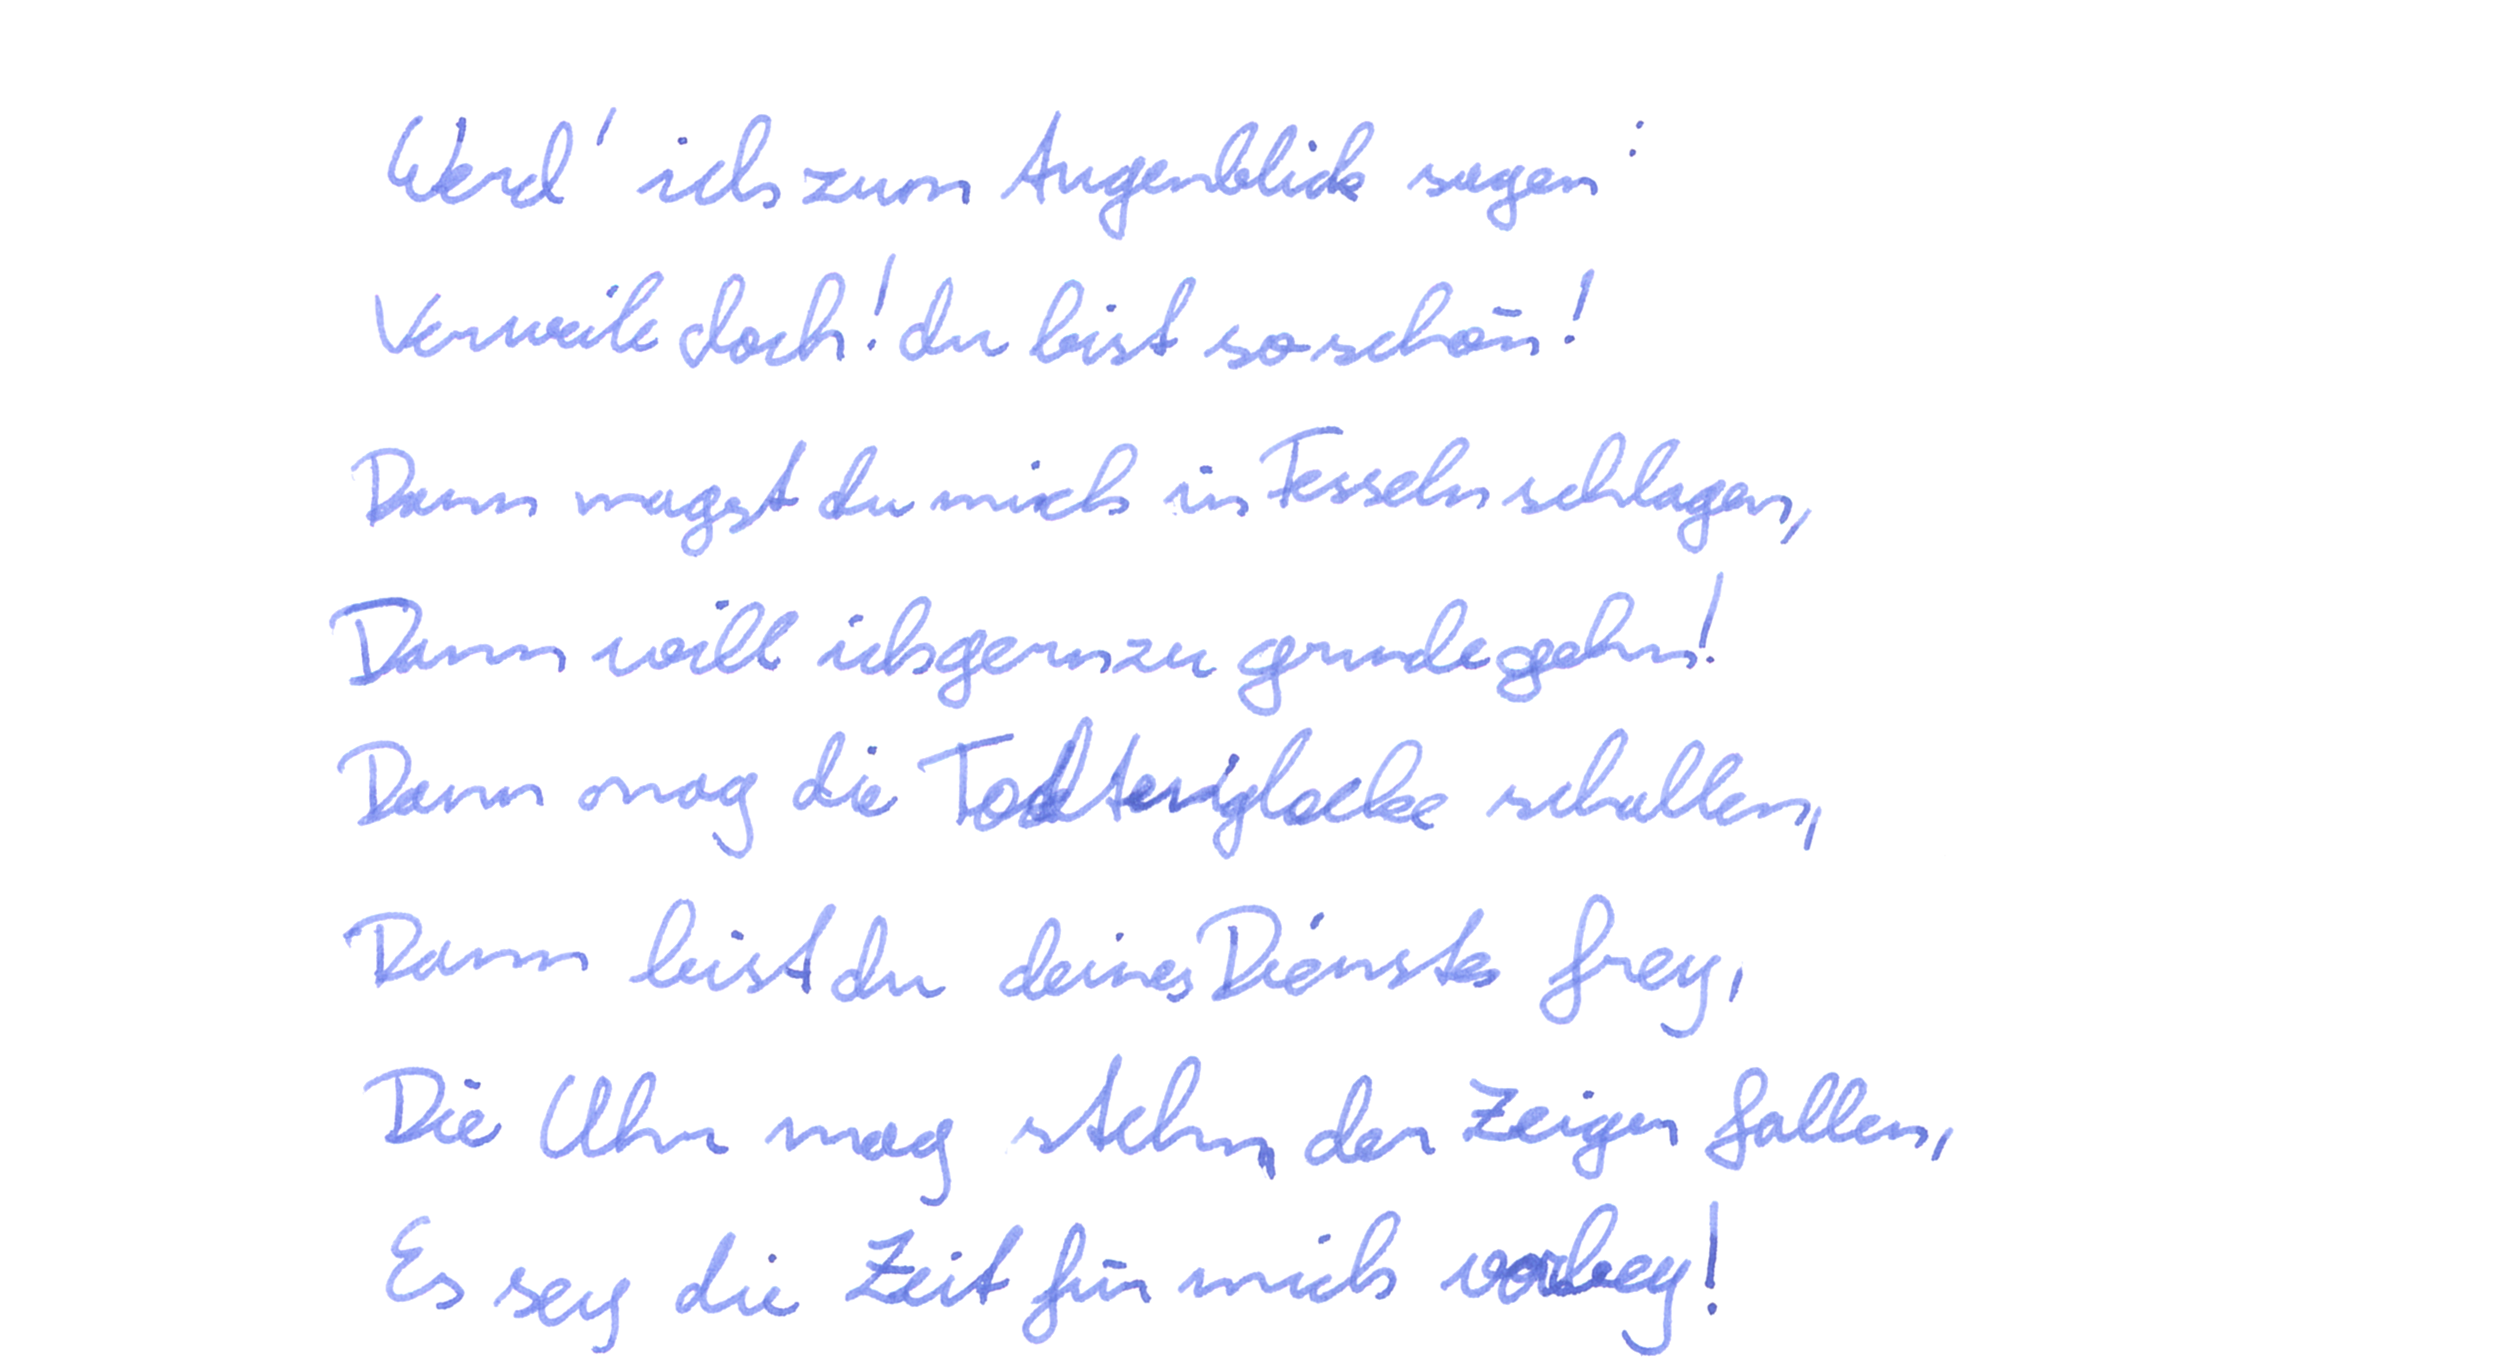 Werd' ich zum Augenblick sagen:
Verweile doch! du bist so schön!
Dann magst du mich in Fesseln schlagen,
Dann will ich gern zu grunde gehn!
Dann mag die Todtenglocke schallen,
Dann bist du deines Dienstes frey,
Die Uhr mag stehn, der Zeiger fallen,
Es sey die Zeit für mich vorbey!